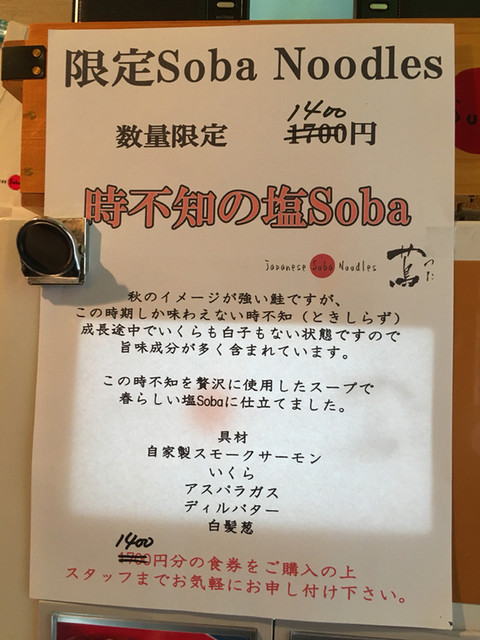 限定Soba Noodles
1400
数量限定 1700円
時不知の塩Soba
Japanese Soba Noodles 蔦 つた
秋のイメージが強い鮭ですが、
この時期しか味わえない時不知（ときしらず）
成長途中でいくらも白子もない状態ですので
旨味成分が多く含まれています。
この時不知を贅沢に使用したスープで
春らしい塩Sobaに仕立てました。
具材
自家製スモークサーモン
いくら
アスパラガス
ディルバター
白髪葱
1400
1700円分の食券をご購入の上
スタッフまでお気軽にお申し付け下さい。